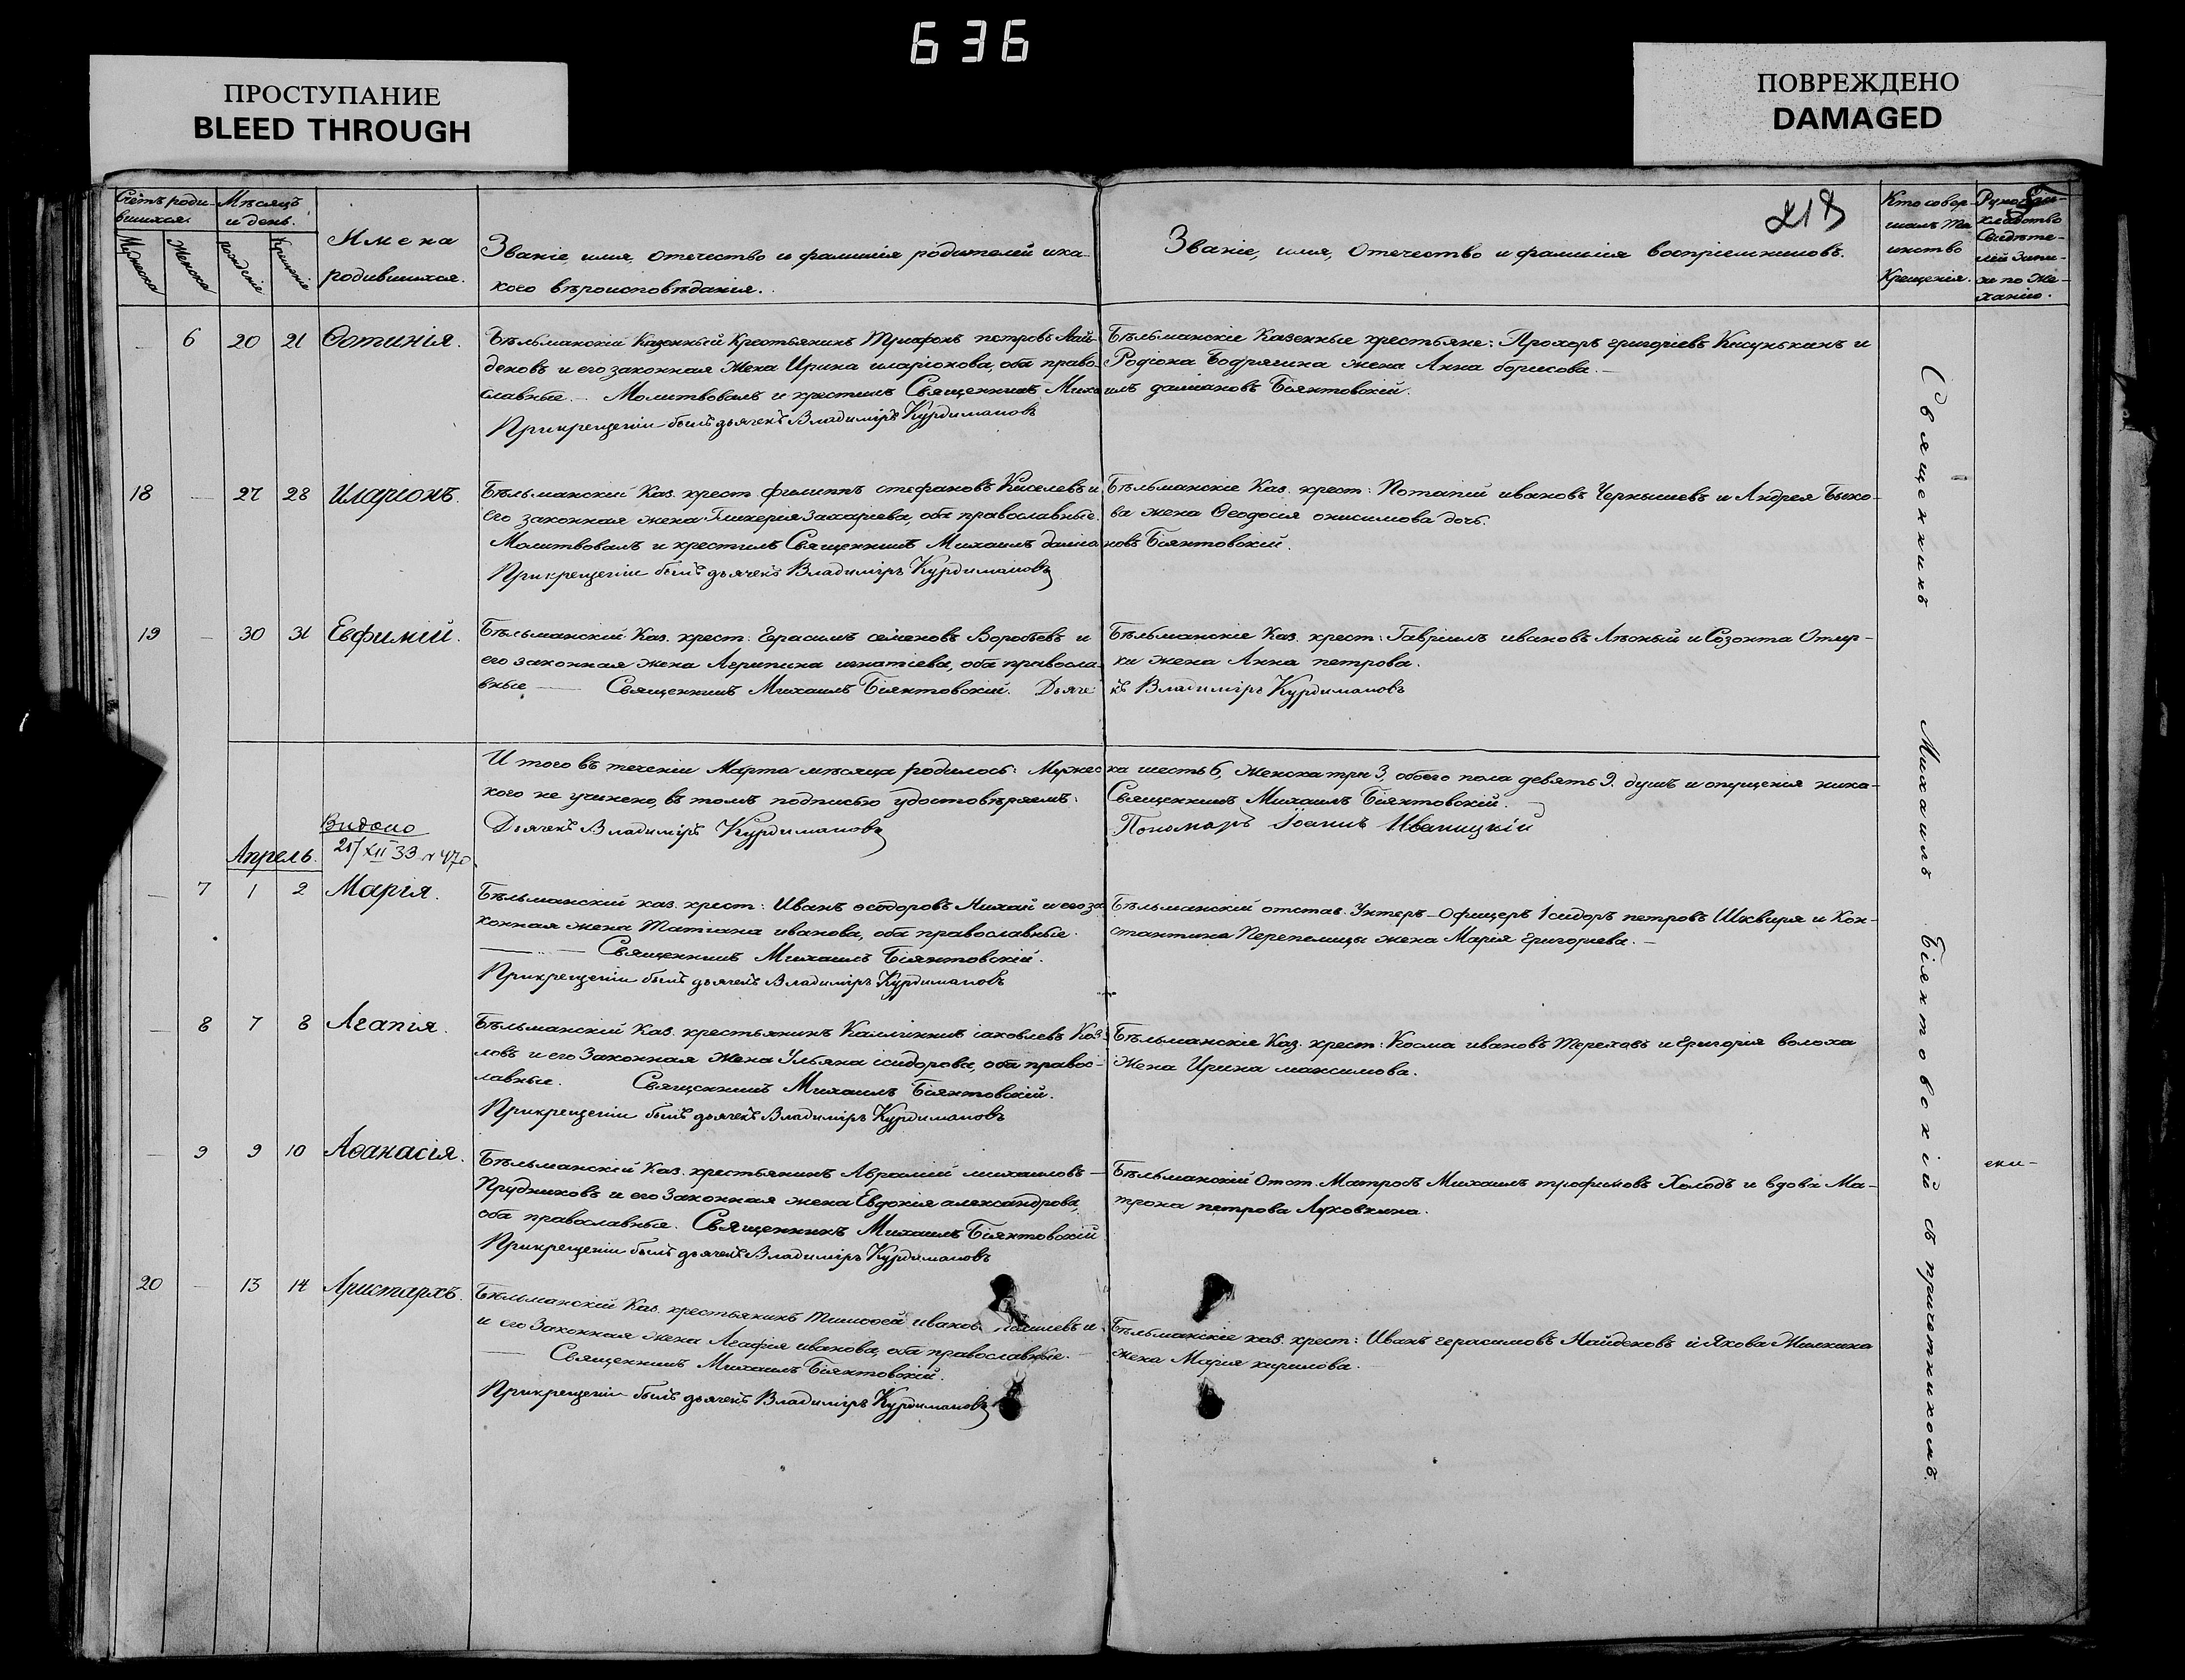 636
ПРОСТУПАНИЕ
BLEED THROUGH
ПОВРЕЖДЕНО
DAMAGED
218
Счетъ роди-
вшихся.
Мужеска
Женска
Мѣсяцъ
и день.
рожденія
Крещенія
Имена
родившихся.
Званіе имя, отечество и фамилія родителей и ка-
кого вѣроисповѣданія.
Званіе, имя, отечество и фамилія воспріемниковъ.
Кто совер-
шалъ Та-
инство
Крещенія.
Рукопри-
кладство
Свидѣте-
лей запи-
си по Же-
ланію.
— 6 20 21 Фотинія.
Бѣльманскій Казенный Крестьянинъ Трифонъ петровъ Най-
деновъ и его законная Жена Ирина иларіонова, оба право-
славные. — Молитвовалъ и крестилъ Священникъ Миха
Прикрещеніи былъ дьячекъ Владиміръ Курдимановъ
Бѣльманскіе Казенные крестьяне: Прохоръ григоріевъ и
Родіона Бодрягина жена Анна борисова. —
илъ даміановъ Біянтовскій.
18 — 27 28 Иларіонъ.
Бѣльманскій Каз. крест. филиппъ стефановъ Киселевъ и
его законная жена Гликерія Захаріева, оба православные.
Молитвовалъ и крестилъ Священникъ Михаилъ даміа
Прикрещеніи былъ дьячекъ Владиміръ Курдимановъ
Бѣльманскіе Каз. крест: Потапій ивановъ Чернышевъ и Андрея Быко-
ва жена Ѳеодосія онисимова дочь.
новъ Біянтовскій.
19 — 30 31 Евфимій.
Бѣльманскій Каз. крест: Герасимъ семеновъ Воробьевъ и
его законная жена Агрипина игнатіева, оба правосла-
вные — Священникъ Михаилъ Біянтовскій. Дьяче
Бѣльманскіе Каз. крест: Гавріилъ ивановъ Лѣсный и Созонта
жена Анна петрова.
къ Владиміръ Курдимановъ
И того въ теченіи Марта мѣсяца родилось: Мужес
кого не учинено, въ томъ подписью удостовѣряемъ:
Дьячекъ Владиміръ Курдимановъ
ка шесть 6, Женска три 3, обоего пола девять 9. душъ и опущенія ника-
Священникъ Михаилъ Біянтовскій.
Пономарь Іоаннъ Иваницкій
Видано
XII 33 N 470
Апрель.
— 7 1 2 Марія.
Бѣльманскій каз. крест: Иванъ ѳеодоровъ Михай и его за
конная жена Татіана иванова, оба православные.
— Священникъ Михаилъ Біянтовскій.
Прикрещеніи былъ дьячекъ Владиміръ Курдимановъ
Бѣльманскій отстав. Унтеръ-Офицеръ Ісидоръ петровъ Шквиря и Кон-
стантина Перепелицы жена Марія григоріева. —
— 8 7 8 Агапія.
Бѣльманскій Каз. крестьянинъ Каллиникъ іаковлевъ Коз-
ловъ и его Законная Жена Ульяна ісидорова, оба правос-
лавные. Священникъ Михаилъ Біянтовскій.
Прикрещеніи былъ дьячекъ Владиміръ Курдимановъ
Бѣльманскіе Каз. крест: Косма ивановъ Тереховъ и Григорія волоха
Жена Ирина максимова.
— 9 9 10 Аѳанасія.
Бѣльманскій Каз. крестьянинъ Аврамій михаиловъ —
Прудниковъ и его Законная жена Евдокія александрова,
оба православные. Священникъ Михаилъ Біянтовскій
Прикрещеніи былъ дьячекъ Владиміръ Курдимановъ
Бѣльманскій Отст. Матросъ Михаилъ трофимовъ Холодъ и вдова Ма-
трона петрова Луховкина.
20 — 13 14 Аристархъ.
Бѣльманскій Каз. крестьянинъ Тимоѳей иванов и
и его Законная жена Агафія иванова, оба православные. —
— Священникъ Михаилъ Біянтовскій.
Прикрещеніи былъ дьячекъ Владиміръ Курдимановъ
Бѣльманскіе каз. крест: Иванъ герасимовъ Найденовъ и Якова Милкина
жена Марія кирилова.
Священникъ Михаилъ Біянтовскій съ причетникомъ.